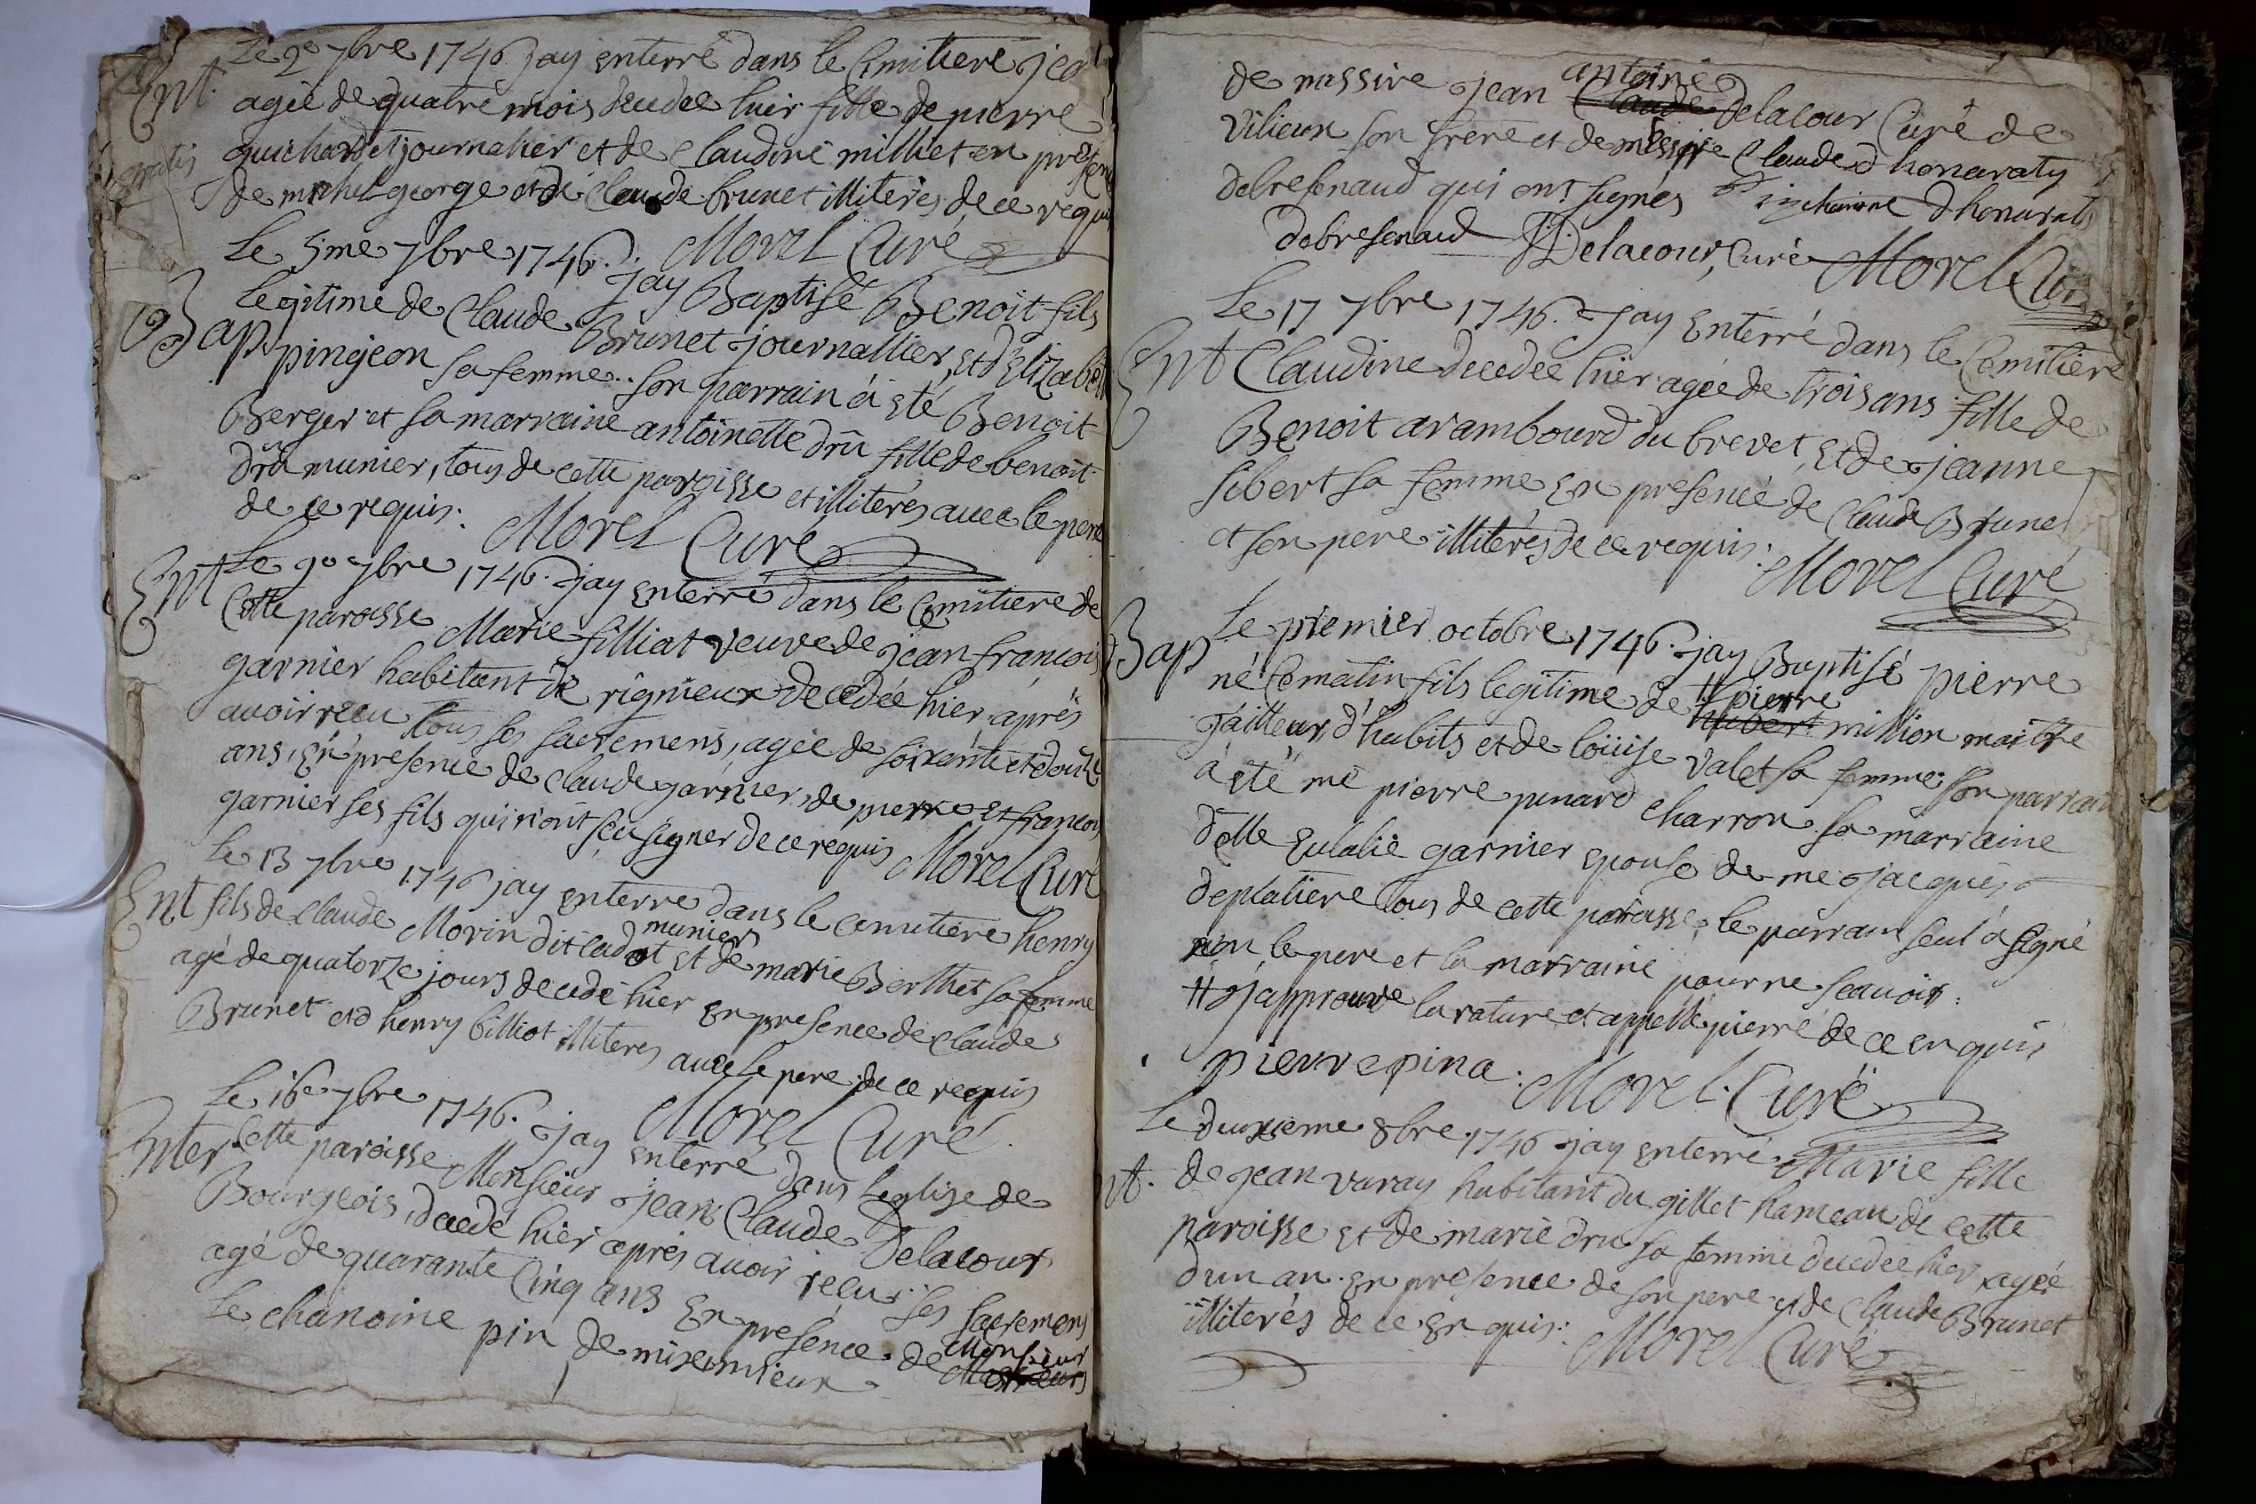 Le 2e 7bre 1746 jay enterré dans le Cimitiere
Ent. agée de quatre mois decedée hier fille de pierre
gratis guichardet journalier et de Claudine milliet en presence
de michel george et de Claude brunet illiterés de ce requis
Morel Curé
Le 5me 7bre 1746. jay Baptisé Benoit fils
Bap legitime de Claude Brunet journallier, et d'Elizabeth
pingeon sa femme. son parrain à eté Benoit
Berger et sa marraine antoinette drû fille de benoit
drû munier, tous de cette paroisse et illiterés avec le pere
de ce requis. Morel Curé
Ent Le 9e 7bre 1746. jay enterré dans le Cemitiere de
Cette paroisse Marie filliat veuve de jean françois
garnier habitant de rignieux decedée hier après
avoir recu tous ses sacremens, agée de soixante et douze
ans, en presence de Claude garnier, de pierre et francois
garnier ses fils qui n'ont sçu signer de ce requis Morel Curé
Le 13 7bre 1746 jay enterré dans le cemitiere henry
Ent fils de Claude Morin dit cadot munier et de marie Berthet sa femme
agé de quatorze jours decedé hier en presence de Claude
Brunet et d henry billiot illiteres avec le pere de ce requis
Morel Curé
Le 16e 7bre 1746. jay enterré dans leglize de
Enter Cette paroisse Monsieur jean Claude Delacour
Bourgeois, decedé hier après avoir reçu ses sacremens
agé de quarante Cinq ans en presence de Monsieur
Le chanoine pin de miximieux
de messire jean antoine Claude Delacour Curé de
Vilieux son frere et de messire Claude d honaraty
debresenaud qui ont signés pin chanoine dhonuraty
debresenaud Delacour, Curé Morel Curé
Le 17 7bre 1746. jay enterré dans le Cemitiere
Ent Claudine decedée hier agée de trois ans fille de
Benoit arambourd du brevet, et de jeanne
sibert sa femme en presence de Claude Brunet
et son pere illiterés de ce requis. Morel Curé
Le premier octobre 1746. jay Baptisé pierre
Bap né Ce matin fils legitime de # pierre hubert million maitre
tailleur d'habits et de loüise valet sa femme: son parrain
à été me pierre punard charron. sa marraine
delle Eulalie garnier epouse de me jacques
deplatiere tous de cette paroisse, le parrain seul a signé
non le pere et la marraine pour ne scavoir.
# j'approuve la rature et appellé pierre de ce en quis
pierre pina. Morel Curé
Le deuxieme 8bre 1746 jay enterré Marie fille
nt. de jean varay habitant du gillet hameau de cette
paroisse et de marie dru sa femme decedée hier agée
d'un an. en presence de son pere et de Claude Brunet
illiterés de ce en quis: Morel Curé